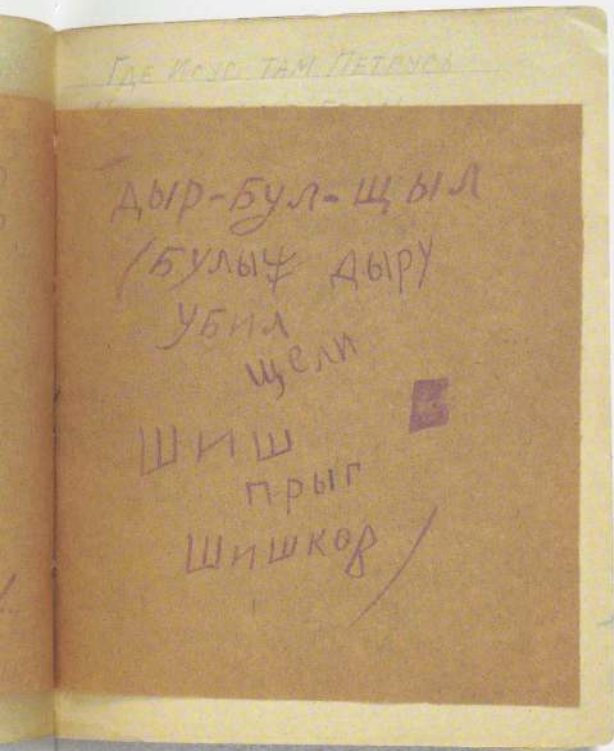 Где Исус там Петрусь
дыр-Бул-щыл
(Булыж дыру
убил
щели
шиш
прыг
шишков)